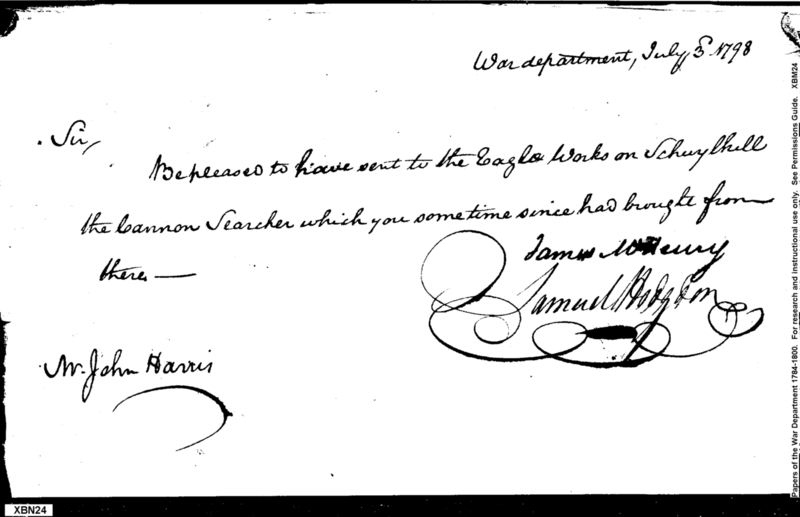 War department, July 3d 1798
Sir,
Be pleased to have sent to the Eagle Works on Schuylkill
the Cannon Searcher which you sometime since had brought from
there —
James McHenry
Samuel Hodgdon
Mr. John Harris
XBN24
Papers of the War Department 1784-1800. For research and instructional use only. See Permissions Guide. XBM24